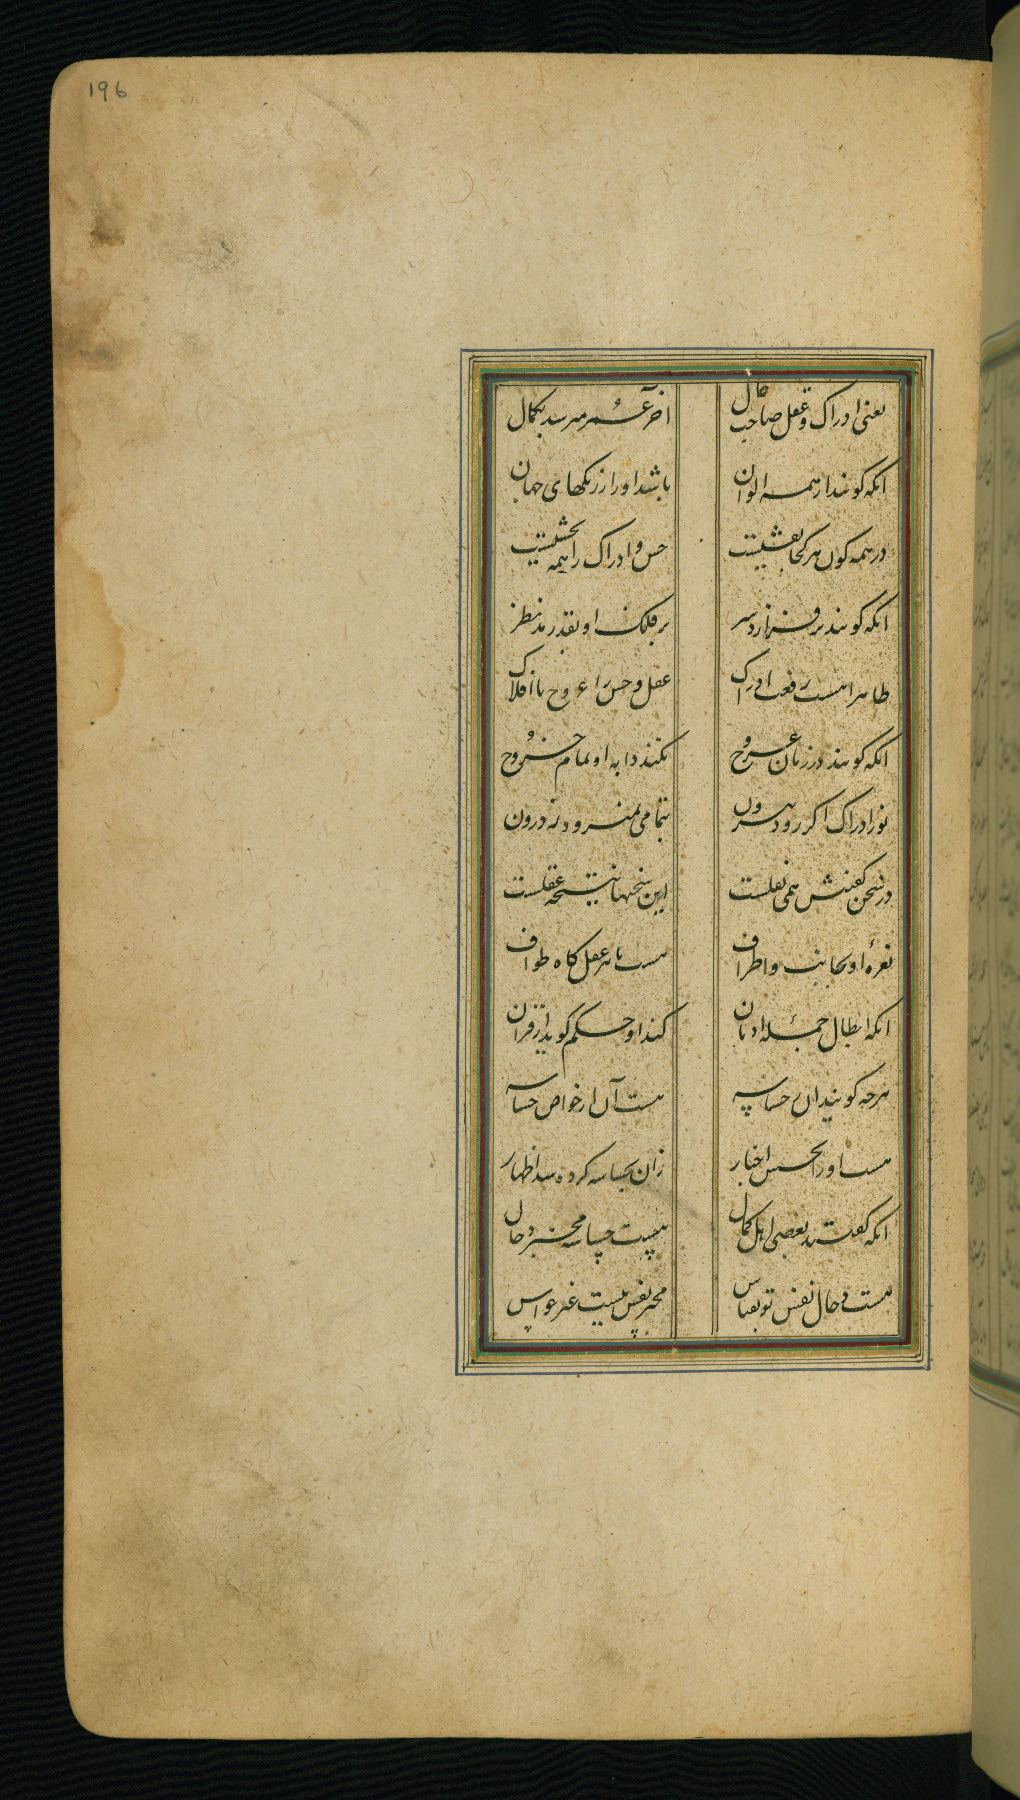 196
یعنی ادراک و عقل صاحب حال
آخر عمر میرسد بکمال
آنکه کویند از همه الوان
باشد او را ز رنکهای جهان
در همه کون هر کجا نقشیست
حس و ادراک را بهمه بخشیست
آنکه کویند بر فرازد سر
بر فلک او بقدر مد نظر
ظاهرا هست رفعت ادراک
عقل و حس را عروج با افلاک
آنکه کویند در زمان عروج
نکند دابه او تمام خروج
نور ادراک اکر رود بیرون
بتمامی نمیرود ز درون
در سخن کفتنش همی نقلست
این سخنها نتیجه عقلست
نعرهٔ او بجانب و اطراف
هست با هر عقل کاه طواف
آنکه ابطال جملهٔ ادیان
کند او حکم کوید از قرآن
هرچه کویند از جساسه
هست آن از خواص حساسه
هست او را بحس اخبار
زان بجساسه کرده شد اظهار
آنکه کفتند بعضی اهل کمال
نیست جساسه مخبر دجال
هست دجال نفس تو بقیاس
مخبر نفس نیست غیر حواس